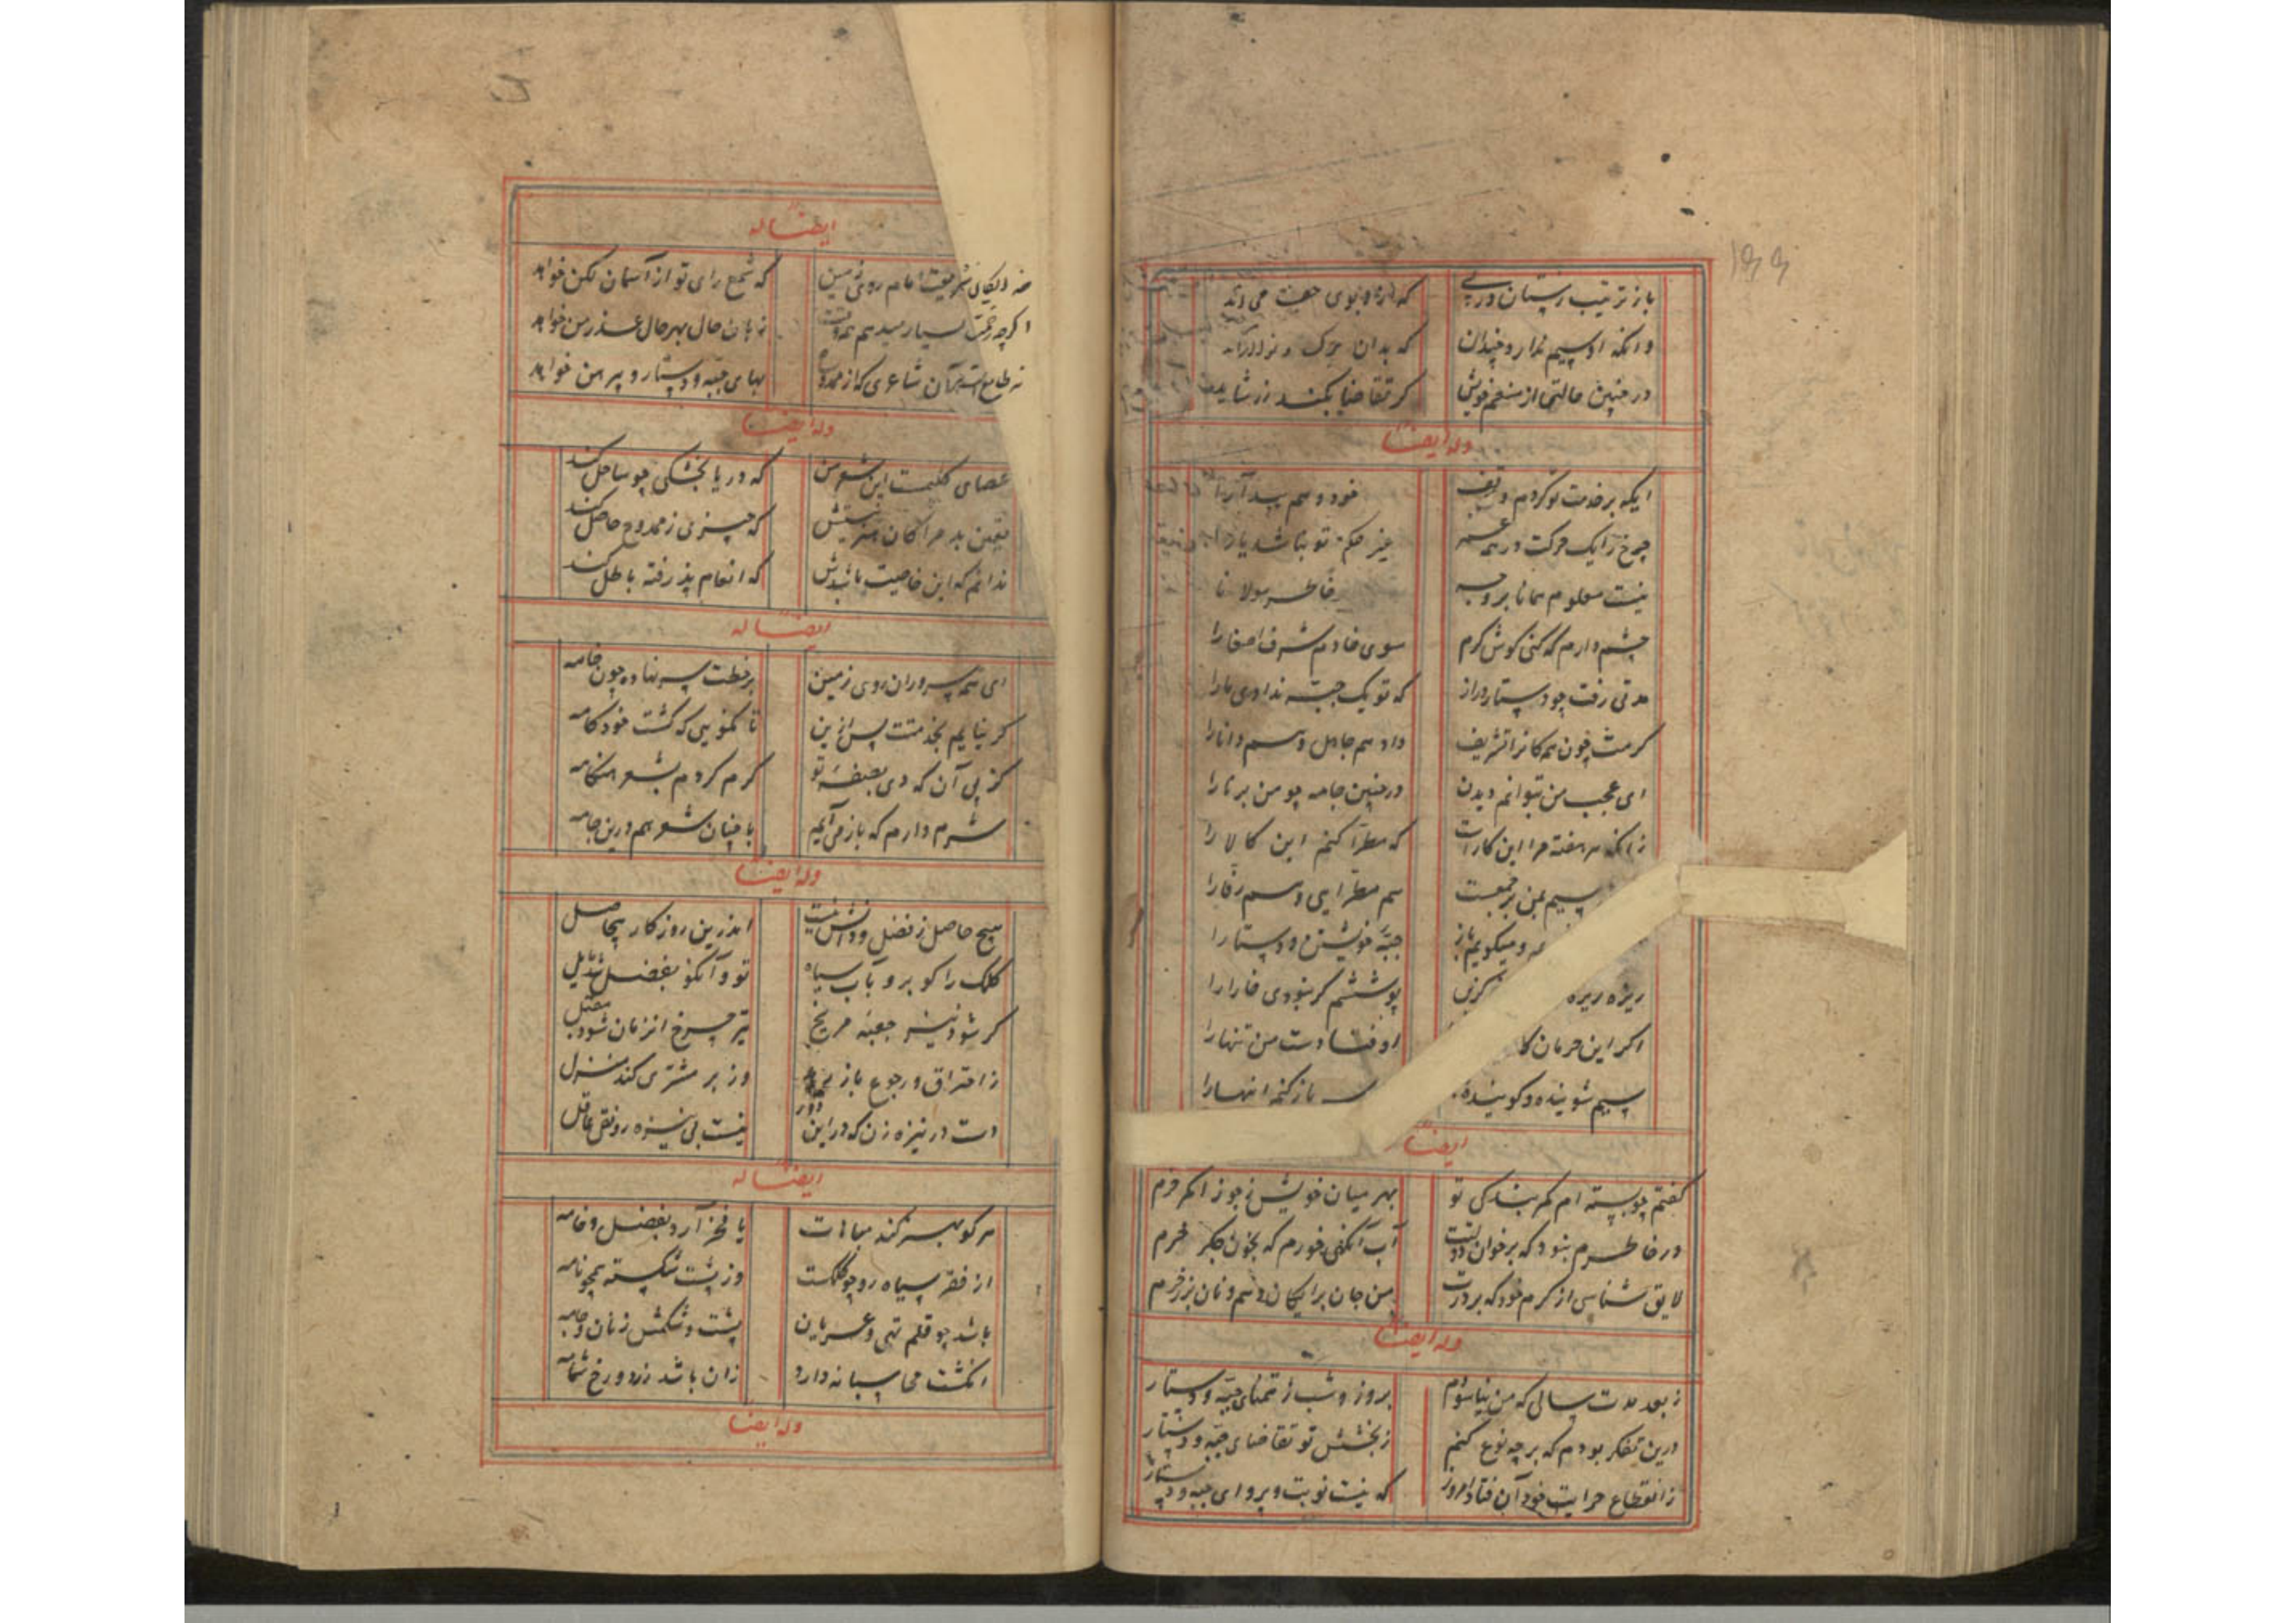 باز ترتیب زمستان در پی
که
وانکه او سیم ندارد چندان
که بدان برک و نوا
در چنین حالتی از منعم خویش
کر تقاضا بکند
وله ایضا
ایکه بر خدمت تو کردم وقف
خود و هم
چرخ را یک حرکت در همه
غیر حکم تو نباشد یارا
نیست معلوم همانا بر وجه
خاطر مولانا
چشم دارم که کنی کوش کرم
سوی خادم شرف اصغا را
مدتی رفت چو دستار دراز
که تو یک جبه ندادی ما را
کرمت چون همکانرا تشریف
داد هم جاهل و هم دانا را
ای عجب من نتوانم دیدن
در چنین جامه چو من برنا را
زانکه هر هفته مرا این کارست
که مطرا کنم این کالا را
سیم من بر جمعت
هم مطرایی و هم رفا را
و میکویم باز
جبه خویشتن و دستار را
ریزه ریزه
پوششم کر بنودی خارا را
اکر این حرمان
اوفتادست من تنها را
سیم شوینده و کوینده
باز کنم انها را
ایضا
کفتم چو بسته ام کمر بندکی تو
بهر میان خویش ز جوزا کمر خرم
در خاطرم نبود که بر خوان دولتت
آب آنکهی خورم که بخون جکر خرم
لایق شناسی از کرم خود که بر درت
من جان برایکان دهم و نان بزر خرم
وله ایضا
ز بعد مدت سالی که من نیاسودم
بروز و شب ز تمنای جبه و دستار
درین تفکر بودم که بر چه نوع کنم
ز بخشش تو تقاضای جبه و دستار
ز انقطاع جرایت خود آن فتاد امروز
که نیست نوبت و پروای جبه و دستار
ایضا له
شریعت امام روی زمین
که شمع رای تو از آسمان لکن خواهد
اکرچه زحمت بسیار میدهم
زبان حال بهر حال عذر من خواهد
نه طامعست هر آن شاعری که از ممدوح
بهای جبه و دستار و پیرهن خواهد
وله ایضا
عصای کلیمست این شعر من
که دریا بخشکی چو ساحل کند
یقین بد مرا کان هنر نیستش
که چیزی ز ممدوح حاصل کند
ندانم که این خاصیت باشدش
که انعام پذرفته باطل کند
ایضا له
ای همه سروران روی زمین
بر خطت سر نهاده چون خامه
کر نیایم بخدمتت پس ازین
تا نکویی که کشت خودکامه
کز پی آن که دی بصفه تو
کرم کردم بشعر هنکامه
شرم دارم که باز می آیم
با چنان شعر هم درین جامه
وله ایضا
هیچ حاصل ز فضل و دانش نیست
اندرین روزکار بیحاصل
کلک را کو برو بآب سیاه
کر شود نیزه جعبه مریخ
تیر چرخ انزمان شود مقبل
ز احتراق و رجوع باز
وز بر مشتری کند منزل
دست در نیزه زن که در این دور
نیست بی نیزه رونق عاقل
ایضا له
هر کو بهنر کند مباهات
یا فخر آرد بفضل و خامه
از فقر سیاه رو چو کلکست
وز پشت شکسته همچو نامه
باشد چو قلم تهی و عریان
پشت و شکمش ز نان و جامه
انکشت محاسبانه دارد
زان باشد زرد و رخ شمامه
وله ایضا